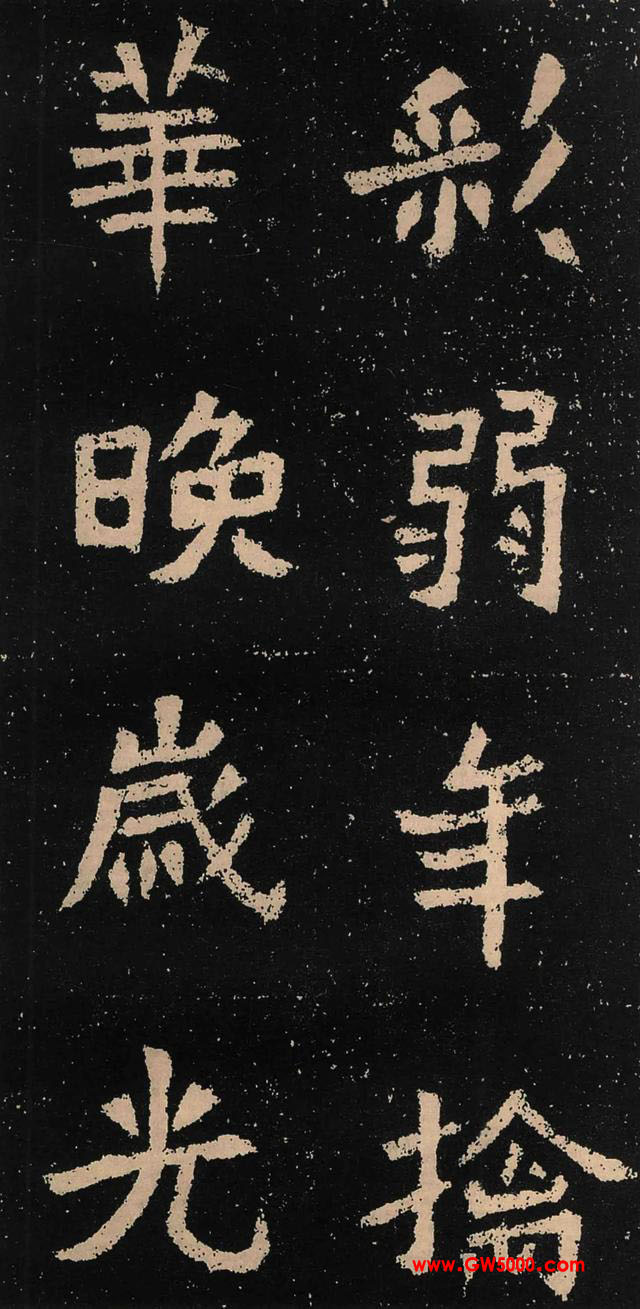 彩弱年摛
華晚歲光
www.GW5000.com